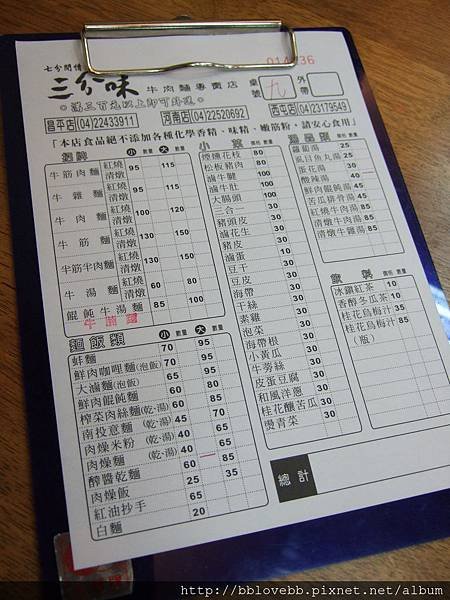 014236
七分閒情
三分味 牛肉麵專賣店
桌號 九 外帶
。滿三百元以上即可外送。
昌平店(04)22433911 河南店(04)22520692 西屯店(04)23179549
「本店食品絕不添加各種化學香精、味精、嫩筋粉,請安心食用」
招牌 小 數量 大 數量
牛筋肉麵 紅燒 清燉 95 115
牛雜麵 紅燒 清燉 95 115
牛肉麵 紅燒 清燉 100 120
牛筋麵 紅燒 清燉 130 150
半筋半肉麵 紅燒 清燉 130 150
牛湯麵 紅燒 清燉 60 80
餛飩牛湯麵 85 100
麵飯類 小 數量 大 數量
蚌麵 70 95
鮮肉咖哩麵(泡飯) 70 95
大滷麵(泡飯) 65 95
鮮肉餛飩麵 60 80
榨菜肉絲麵(乾、湯)
南投意麵 (乾、湯)
肉燥米粉 (乾、湯)
肉燥麵
醇醬乾麵
肉燥飯
紅油抄手
白麵
小菜 價格 數量
煙燻花枝 80
松板豬肉 80
滷牛腱 100
滷牛肚 100
大腸頭 100
三合一
豬頭皮
滷花生 30
豬皮 30
滷蛋 10
豆干 30
豆皮 30
海帶 30
干絲 30
素雞 30
泡菜 30
海帶根 30
小黃瓜 30
牛蒡絲 30
皮蛋豆腐 30
和風洋蔥 30
桂花釀苦瓜 30
燙青菜 30
湯品類 價格 數量
蘿蔔湯
虱目魚丸湯
蛋花湯 30
酸辣湯 40
鮮肉餛飩湯
苦瓜排骨湯
紅燒牛肉湯 85
清燉牛肉湯 85
清燉牛雜湯 85
飲料 價格 數量
冰鎮紅茶 10
香醇冬瓜茶 10
桂花烏梅汁 35
桂花烏梅汁 85
(瓶)
總計
http://bblovebb.pixnet.net/album